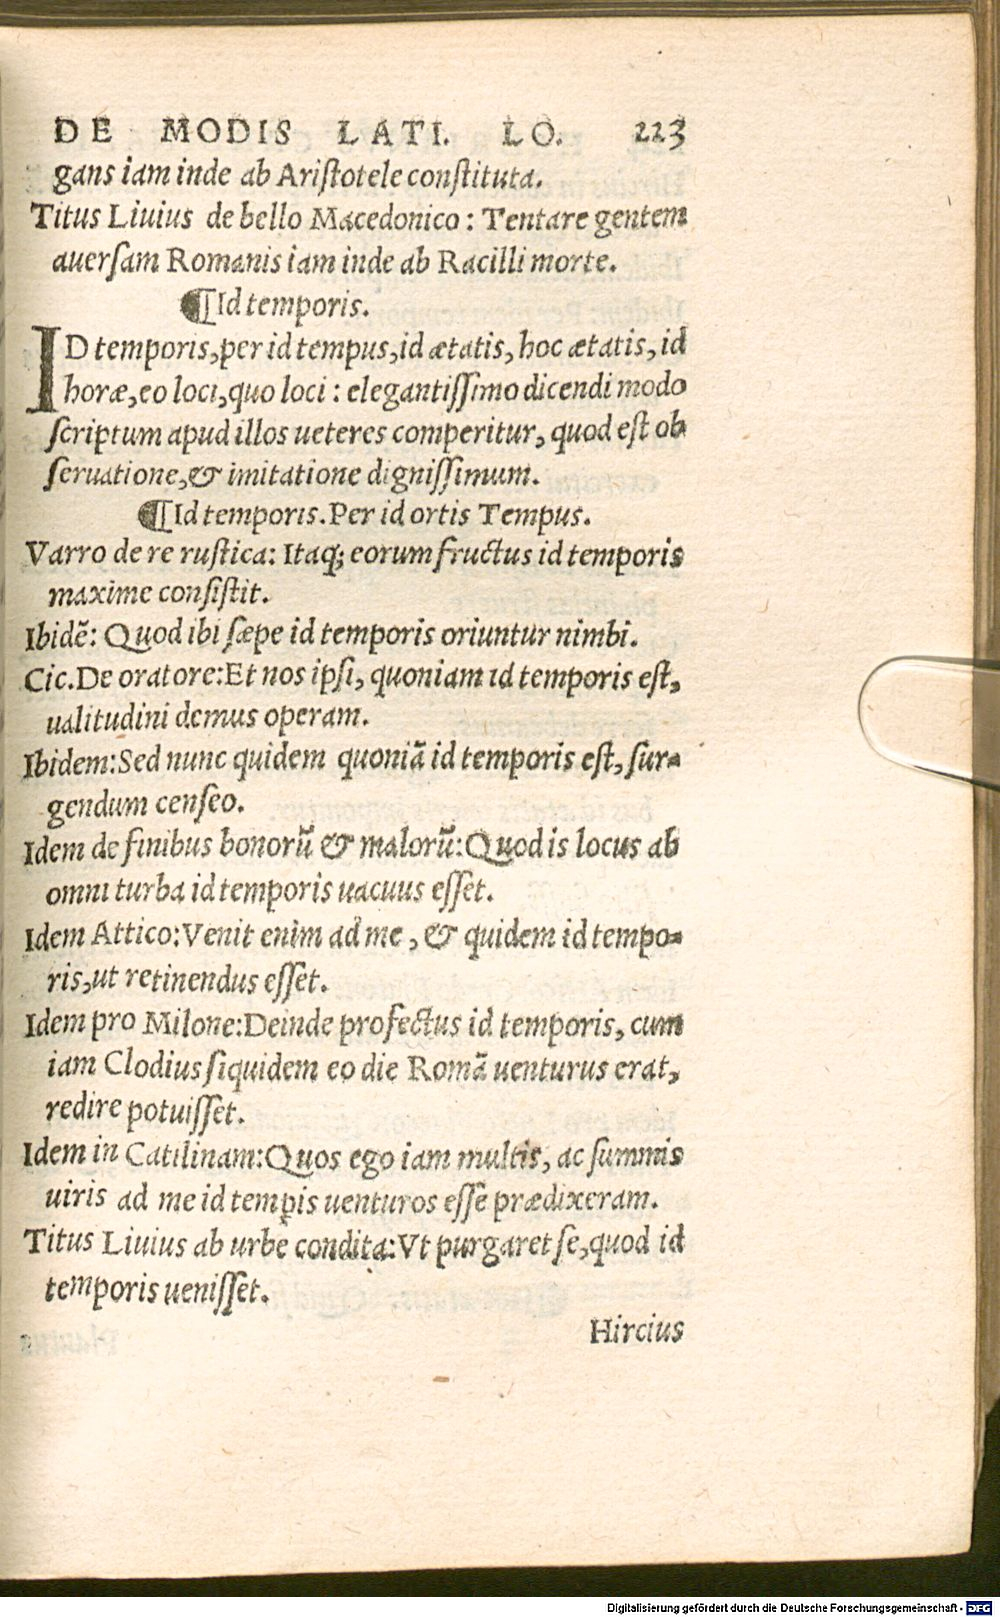 DE MODIS LATI. LO. 223
gans iam inde ab Ariſtotele conſtituta.
Titus Liuius de bello Macedonico : Tentare gentem
auerſam Romanis iam inde ab Racilli morte.
¶Id temporis.
ID temporis,per id tempus,id ætatis, hoc ætatis, id
horæ,eo loci,quo loci : elegantiſſimo dicendi modo
ſcriptum apud illos ueteres comperitur, quod eſt ob-
ſeruatione,& imitatione digniſſimum.
¶Id temporis.Per id ortis Tempus.
Varro de re ruſtica: Itaq; eorum fructus id temporis
maxime conſiſtit.
Ibidẽ: Quod ibi ſæpe id temporis oriuntur nimbi.
Cic.De oratore:Et nos ipſi, quoniam id temporis eſt,
ualitudini demus operam.
Ibidem:Sed nunc quidem quoniã id temporis eſt, ſur-
gendum cenſeo.
Idem de finibus bonorũ & malorũ:Quod is locus ab
omni turba id temporis uacuus eſſet.
Idem Attico:Venit enim ad me , & quidem id tempo-
ris,ut retinendus eſſet.
Idem pro Milone:Deinde profectus id temporis, cum
iam Clodius ſiquidem eo die Romã uenturus erat,
redire potuiſſet.
Idem in Catilinam:Quos ego iam multis, ac ſummis
uiris ad me id temp̱is uenturos eſſe prædixeram.
Titus Liuius ab urbe condita:Vt purgaret ſe,quod id
temporis ueniſſet.
Hircius
Digitalisierung gefördert durch die Deutsche Forschungsgemeinschaft - DFG